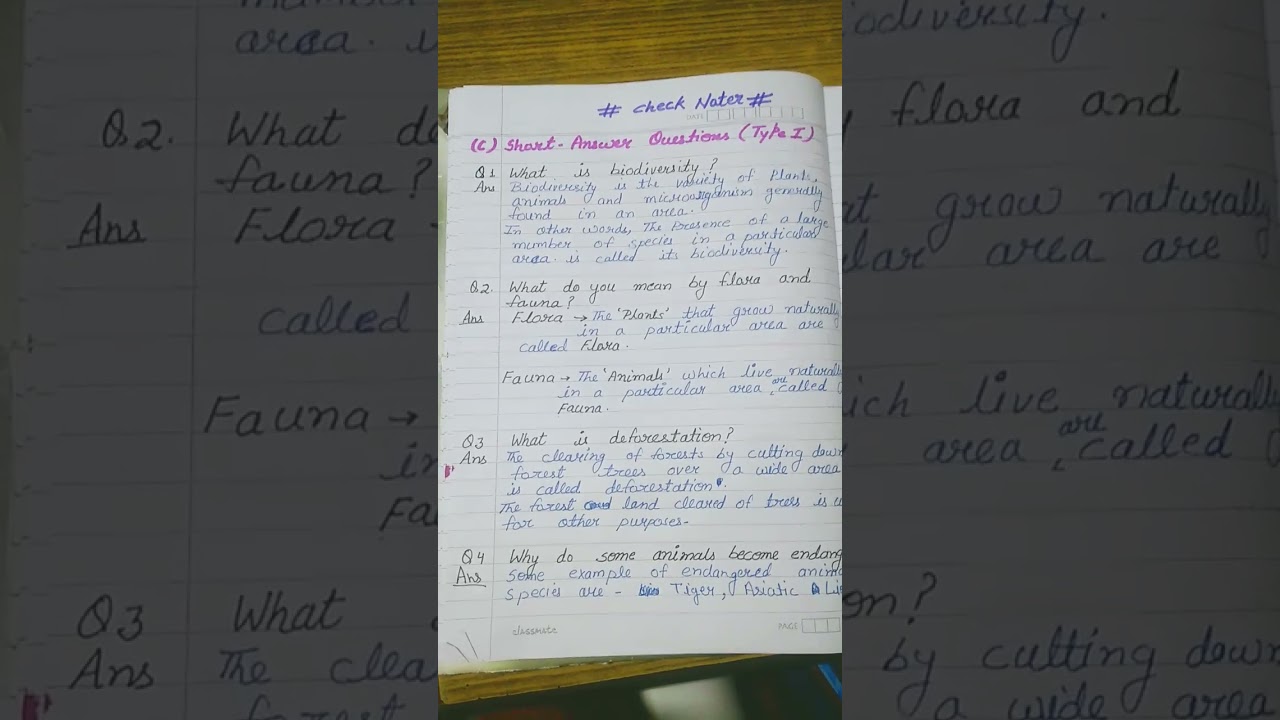 # Check Nater #
DATE
(C) Short-Answer Questions (Type I)
Q1 What is biodiversity?
Ans Biodiversity is the variety of Plants,
animals and microorganism generally
found in an area.
In other words, The Presence of a large
number of species in a particular
area is called its biodiversity.
Q2. What do you mean by flora and
fauna?
Ans Flora → The 'Plants' that grow naturally
in a particular area are
called Flora.
Fauna → The 'Animals' which live naturally
in a particular area are called
Fauna.
Q3 What is deforestation?
Ans The clearing of forests by cutting down
forest trees over a wide area
is called deforestation.
The forest land cleared of trees is
for other purposes-
Q4 Why do some animals become endang
Ans Some example of endangered anima
species are - Tiger, Asiatic Li
classmate
PAGE